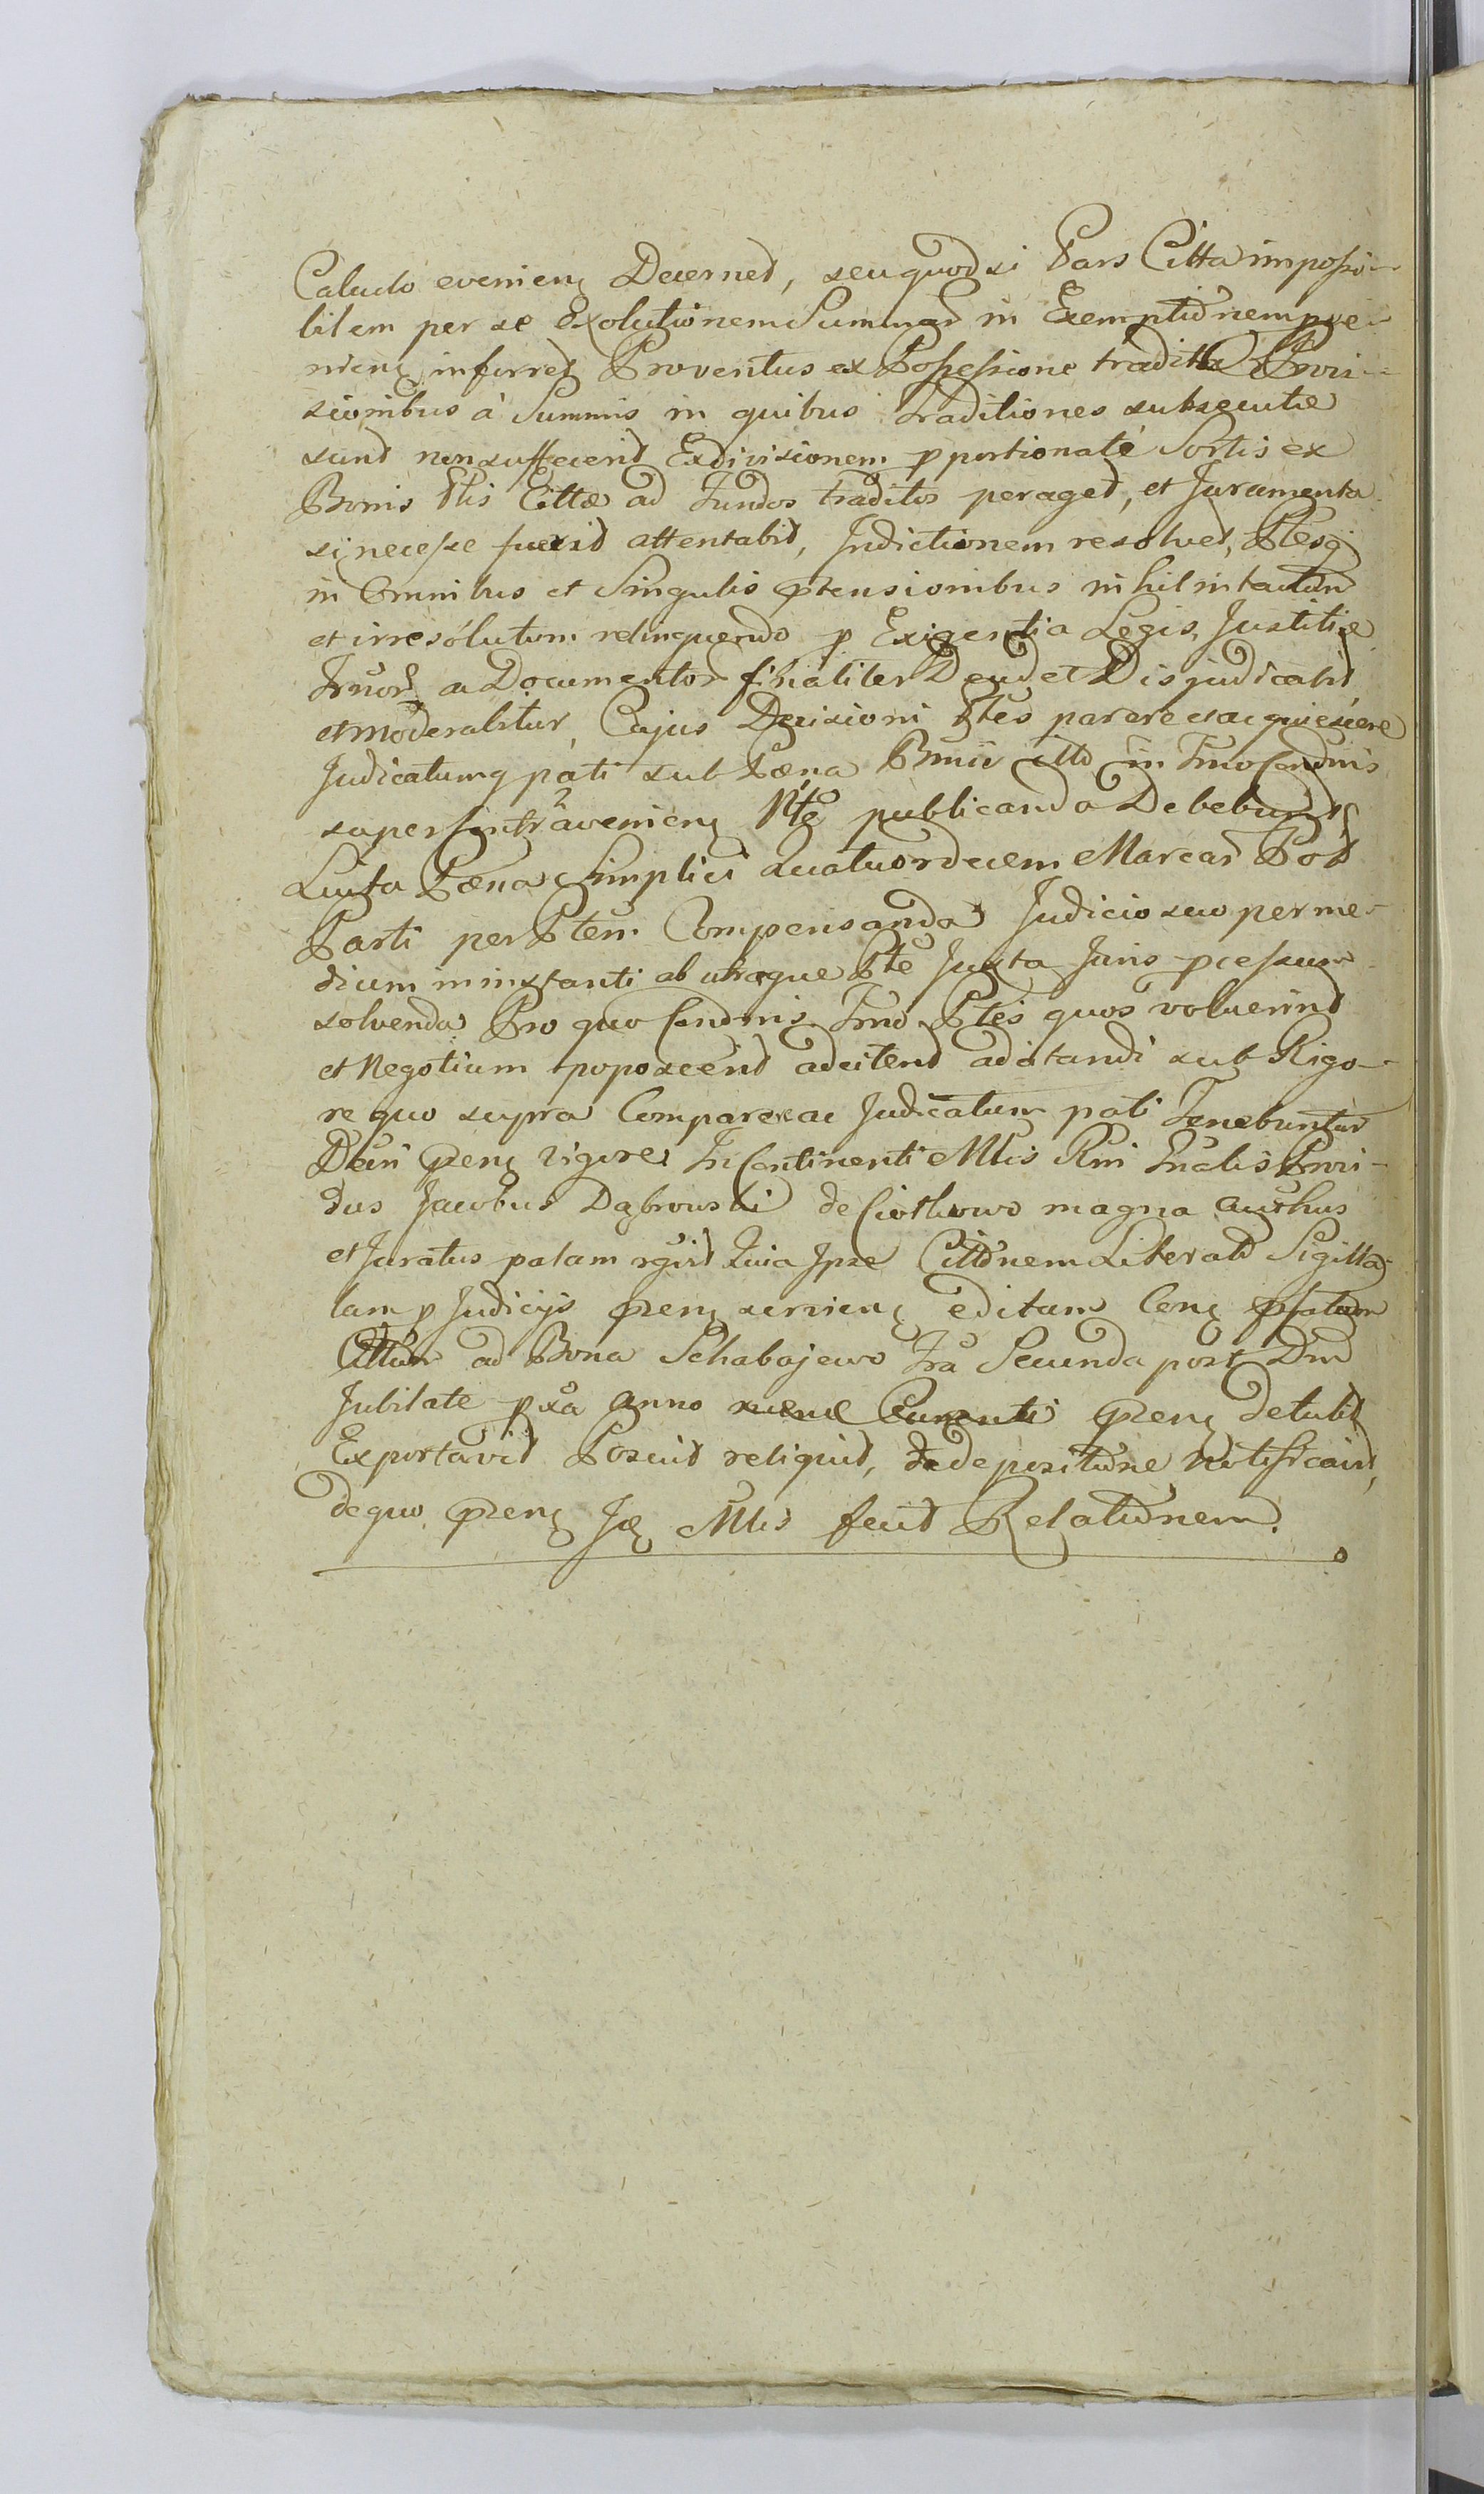 Calculo evenieng Decernet, seu quod si Pars Citta impossi-
bilem per se Exolutionem Summar in Exemptiōnem pve-
nieng inferret Proventus ex Possessione tradittæ Provi-
sionibus à Summis in quibus Traditiones subsecutæ
sunt non suffecerit Exdivisionem pportionatè Sortis ex
Bonis Ptis Cittæ ad Fundos traditos peraget, et Juramenta
si necesse fuerit attentabit, Indictionem resolvet, Ptesq
in Omnibus et Singulis ptensionibus nihil intactum
et irresolutum relinquendo p Exigentia Legis, Justitiæ
Jruor ac Documentor finaliter Deud et Disjudicabit
et moderabitur, Cujus Decisioni Ptes parere et acquiescere
Judicatumq pati sub Pæna Bnnii itto in Tmo Condnis
super Contravenieng Pte publicanda Debebunt
Luita Pæna Simplici Quatuordecem Marcar Pol
Parti per Ptem Compensanda Judicio suo per me-
dium in instanti ab utraque Pte Juxta Juris pcessum
solvenda Pro quo Condnis Tmo Ptes quos voluerint
et Negotium poposcerit adcitent adcitandi sub Rigo-
re quo supra Comparere ac Judicatum pati Tenebuntur
Dein pseng vigore In Continenti Mtis Rni Gnalis Provi-
dus Jacobus Dąbrowski de Ciosłowo magna authus
et Juratus palam rgvit Quia Ipse Cittōnem Literat Sigilla
tam p Judicijs pseng servieng editam Cong pfatum
Cittum ad Bona Schabajewo fra Secunda post Dnd
Jubilate pxa anno nunc Currenti pseng detulit
Exportavit Posuit reliquit, de depositōne Notificavit,
de quo pseng Jq Mtis fecit Relatiōnem.